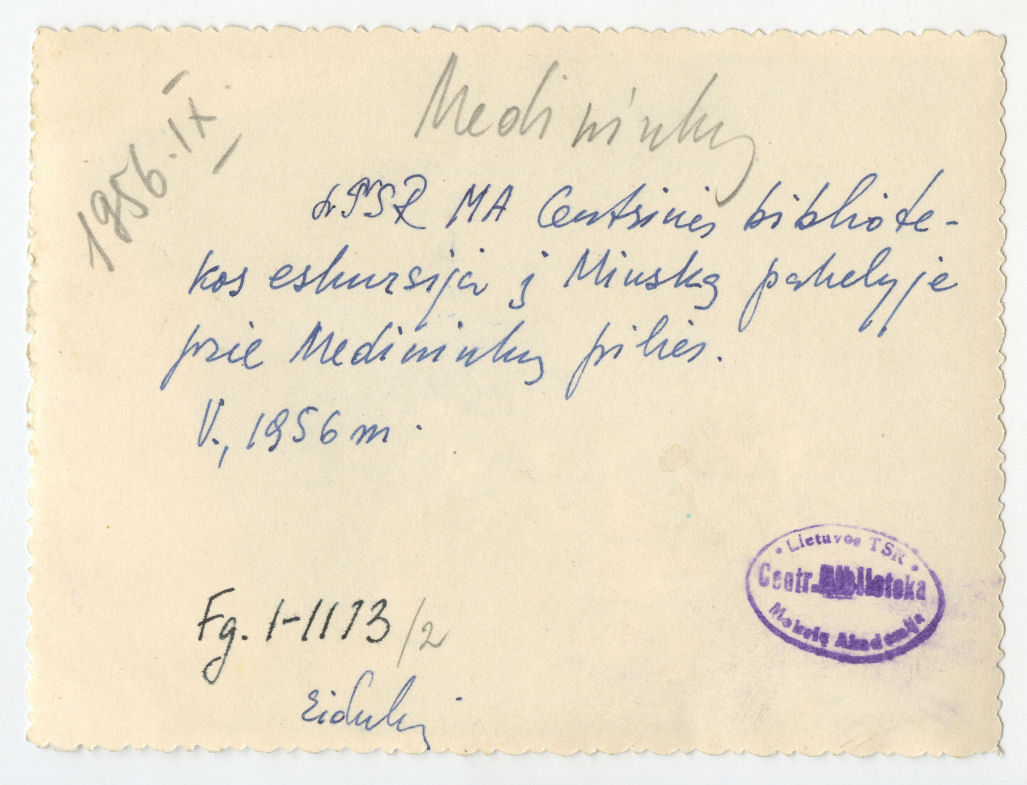 1956.IX.
Medininkų
LTSR MA Centrinės bibliote-
kos ekskursija į Minską pakelyje
prie Medininkų pilies.
V., 1956 m.
Lietuvos TSR
Centr. Biblioteka
Mokslų Akademija
Fg. 1-1113/2